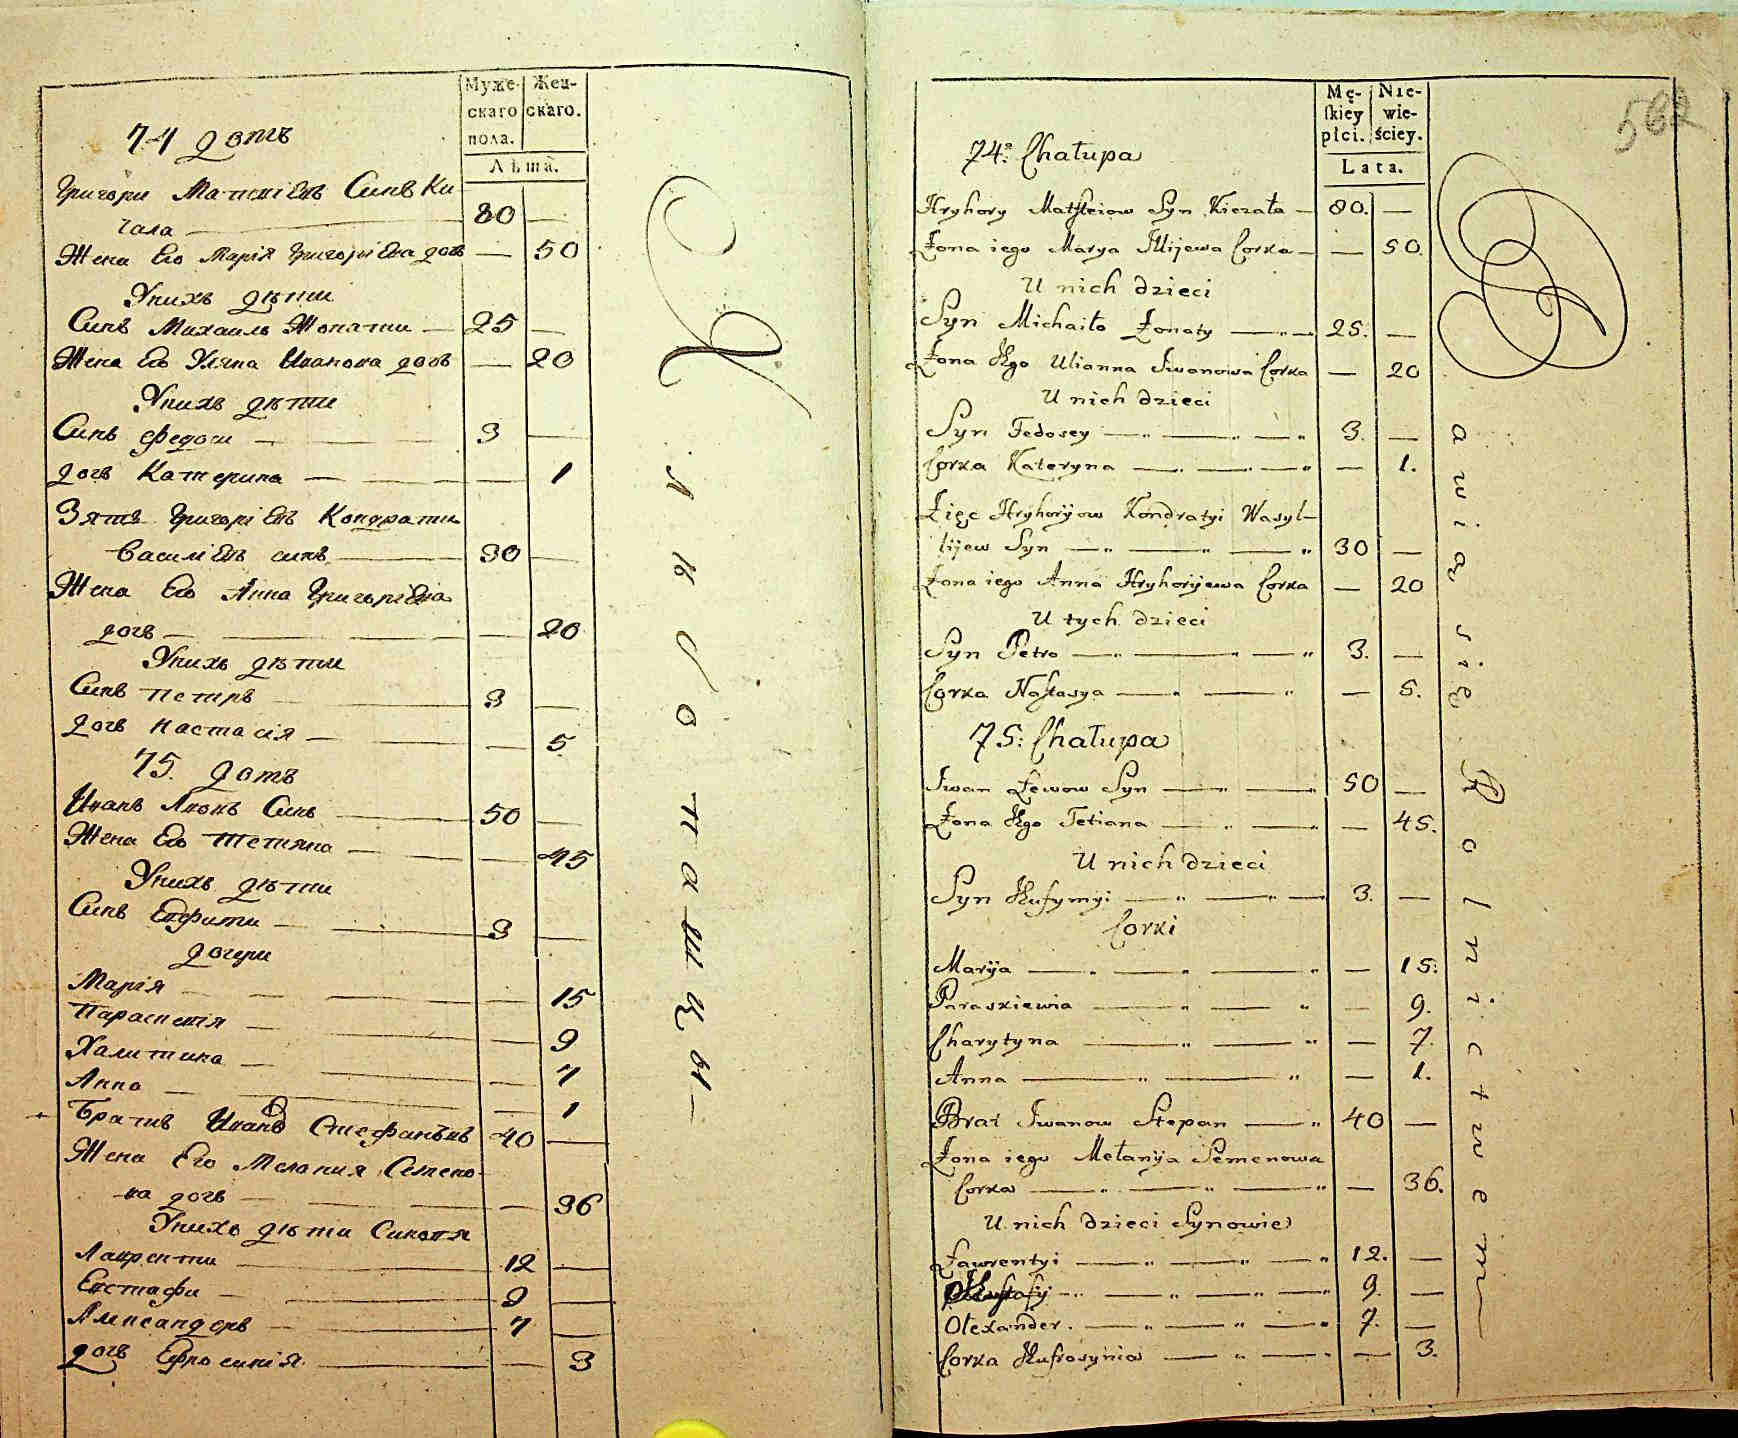 Муже-
скаго
пола.
Жен-
скаго.
Лѣта.
74 домъ
Григори Матвіевъ Синъ Ки
чала 80
Жена Его Марія Григоріева дочь 50
Унихъ дѣти
Синъ Михаилъ Жонати 25
Жена Его Уляна Иванова дочь 20
Унихъ дѣти
Синъ Федоси 3
дочь Катерина 1
Зять Григоріевъ Кондрати
Василіевъ синъ 30
Жена Его Анна Григоріева
дочь 20
Унихъ дѣти
Синъ Петръ 3
дочь Настасія 5.
75. домъ
Иванъ Лвовъ Синъ 50
Жена Его Тетяна 45
Унихъ дѣти
Синъ Евфими 3
дочери
Марія 15
Параскевія 9
Халитина 7
Анна 1
Братъ Ивановъ Стефанъ 40
Жена Его Мелания Семено-
ва дочь 36
Унихъ дѣти Синовя
Лаврети 12
Евстафи 9
Александеръ 7
дочь Ефросинія 3
Хлѣбопашцы
582
Mę-
skiey
płci.
Nie-
wie-
ściey.
Lata.
74.a Chałupa
Hryhory Matfieiow Syn Kiczała 80.
Żona iego Marya Illijewa Corka 50.
U nich dzieci
Syn Michaiło Żonaty 25.
Żona Ego Ulianna Iwanowa Corka 20
U nich dzieci
Syn Fedosey 3.
Corka Kateryna 1.
Zięc Hryhoryow Kondratyi Wasyl-
lijew Syn 30
Żona iego Anna Hryhoryjewa Corka 20
U tych dzieci
Syn Petro 3.
Corka Nastasya 5.
75: Chałupa
Iwan Lewow Syn 50
Żona Ego Tetiana 45.
U nich dzieci
Syn Eufymyi 3.
Corki
Maryia 15:
Paraskiewia 9.
Charytyna 7.
Anna 1.
Brat Iwanow Stepan 40
Żona iego Mełanyia Semenowa
Corka 36.
U nich dzieci Synowie
Ławrentyi 12.
Eustafy 9.
Olexander. 7.
Corka Eufrosynia 3.
Bawią się Rolnictwem